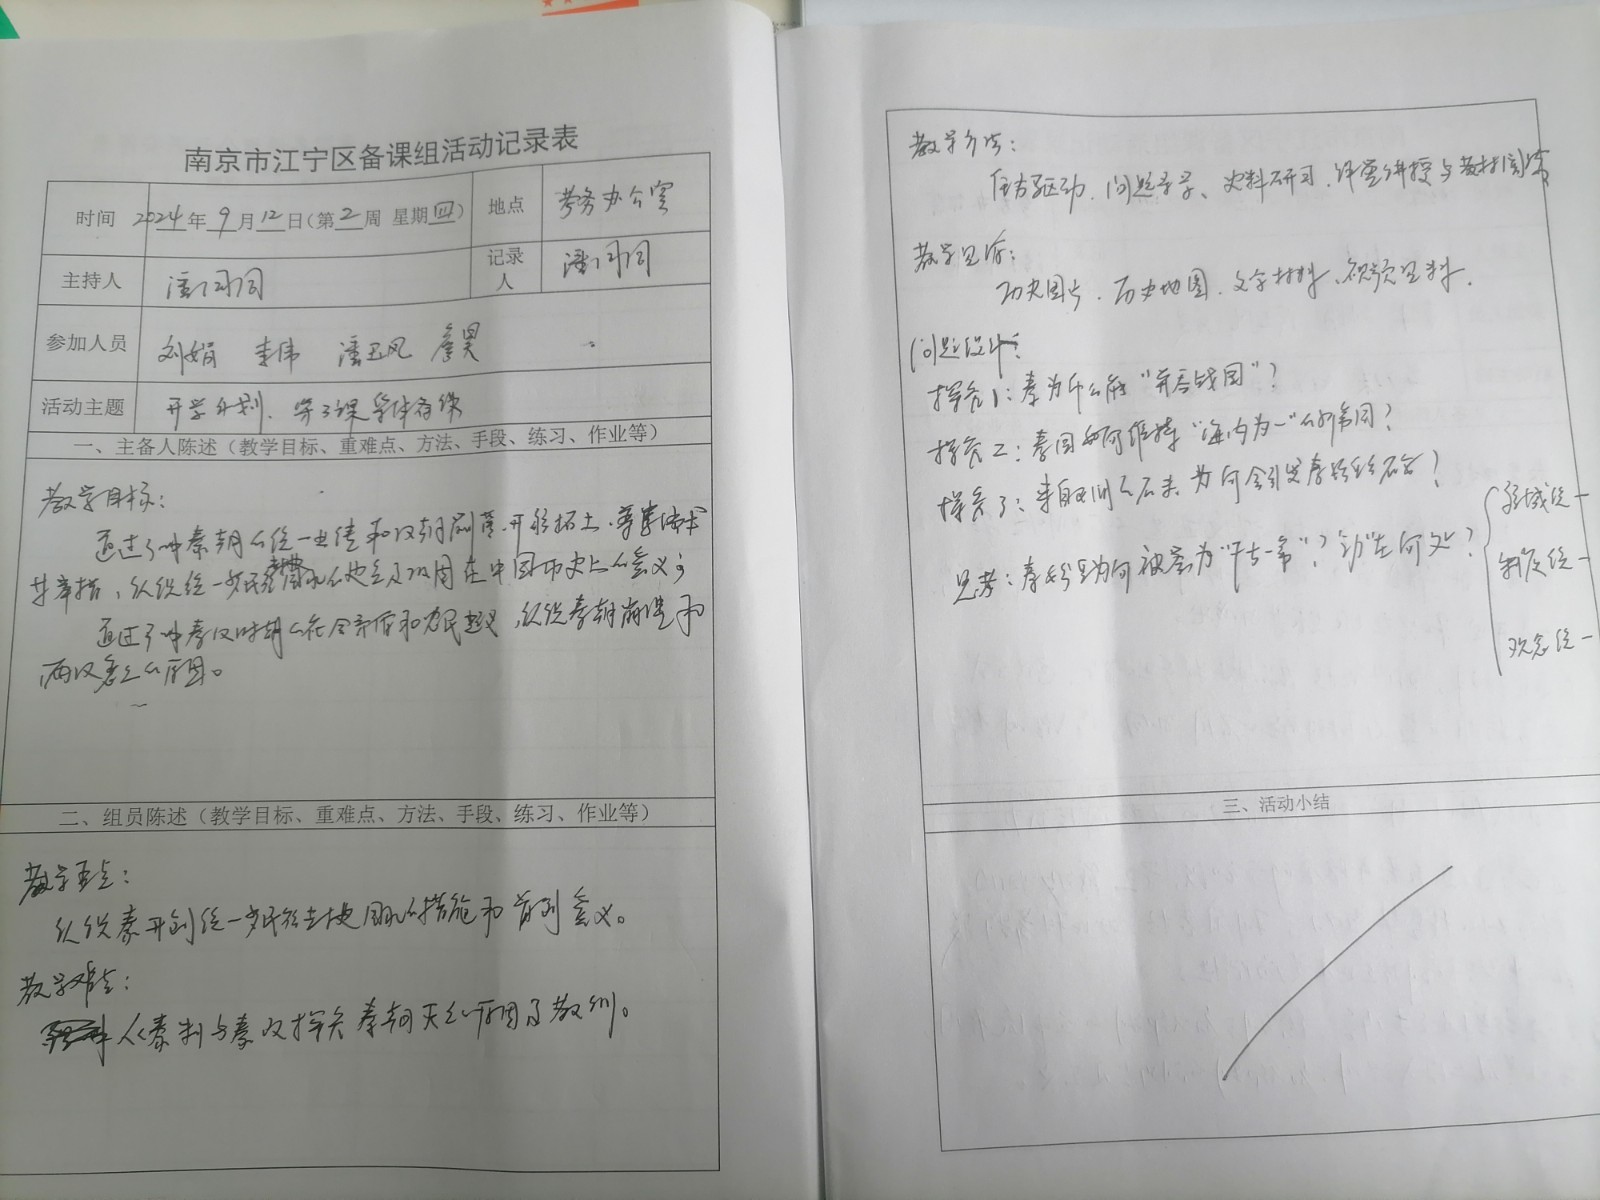 南京市江宁区备课组活动记录表
时间 2024年9月12日(第2周 星期四) 地点 劳务办公室
主持人 潘同同 记录人 潘同同
参加人员 刘娟 李伟 潘卫风 詹昊
活动主题 开学计划、第3课集体备课
一、主备人陈述（教学目标、重难点、方法、手段、练习、作业等）
教学目标：
通过了解秦朝的统一业绩和汉朝削藩、开疆拓土、尊崇儒术
等举措，认识统一多民族封建国家的建立及巩固在中国历史上的意义；
通过了解秦汉时期的社会矛盾和农民起义，认识秦朝崩溃和
两汉衰亡的原因。
二、组员陈述（教学目标、重难点、方法、手段、练习、作业等）
教学重点：
认识秦开创统一多民族封建国家的措施和 意义。
教学难点：
从秦制与秦政探究秦朝灭亡的原因及教训。
教学方法：
任务驱动、问题导学、史料研习、课堂讲授与教材阅读
教学资源：
历史图片、历史地图、文字材料、视频资料。
问题设计：
探究1：秦为什么能“并吞战国”？
探究二：秦国如何维持“海内为一”的新帝国？
探究3：来自 间的石末，为何会引发秦 ？
思考：秦始皇为何被誉为“千古一帝”？功在何处？
疆域统一
制度统一
观念统一
三、活动小结